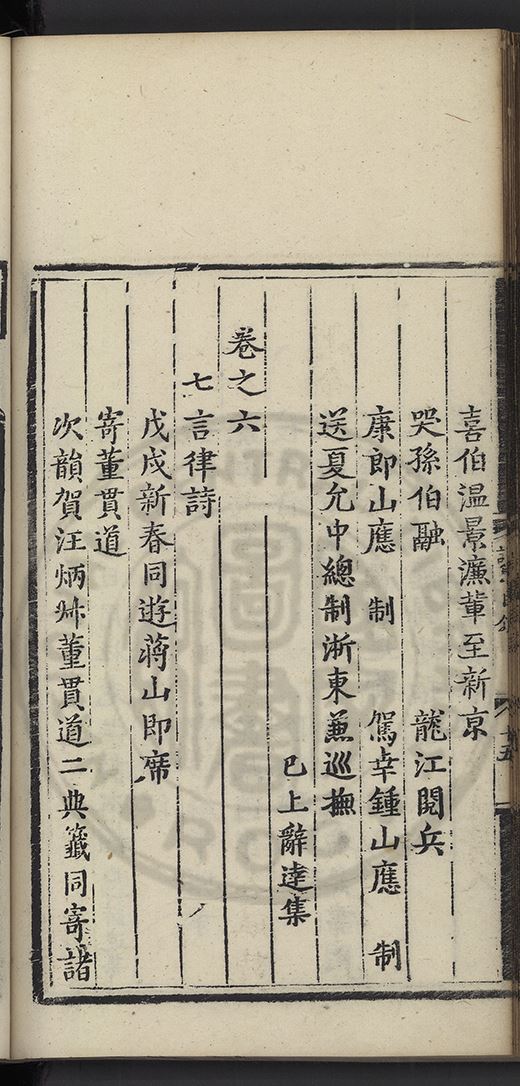 喜伯溫景濂輩至新京
哭孫伯融　龍江閱兵
康郎山應　制　駕幸鍾山應　制
送夏允中總制浙東兼巡撫
已上辭逹集
卷之六
七言律詩
戊戌新春同遊蔣山即席
寄董貫道
次韻賀汪炳𠦑董貫道二典籤同寄諸